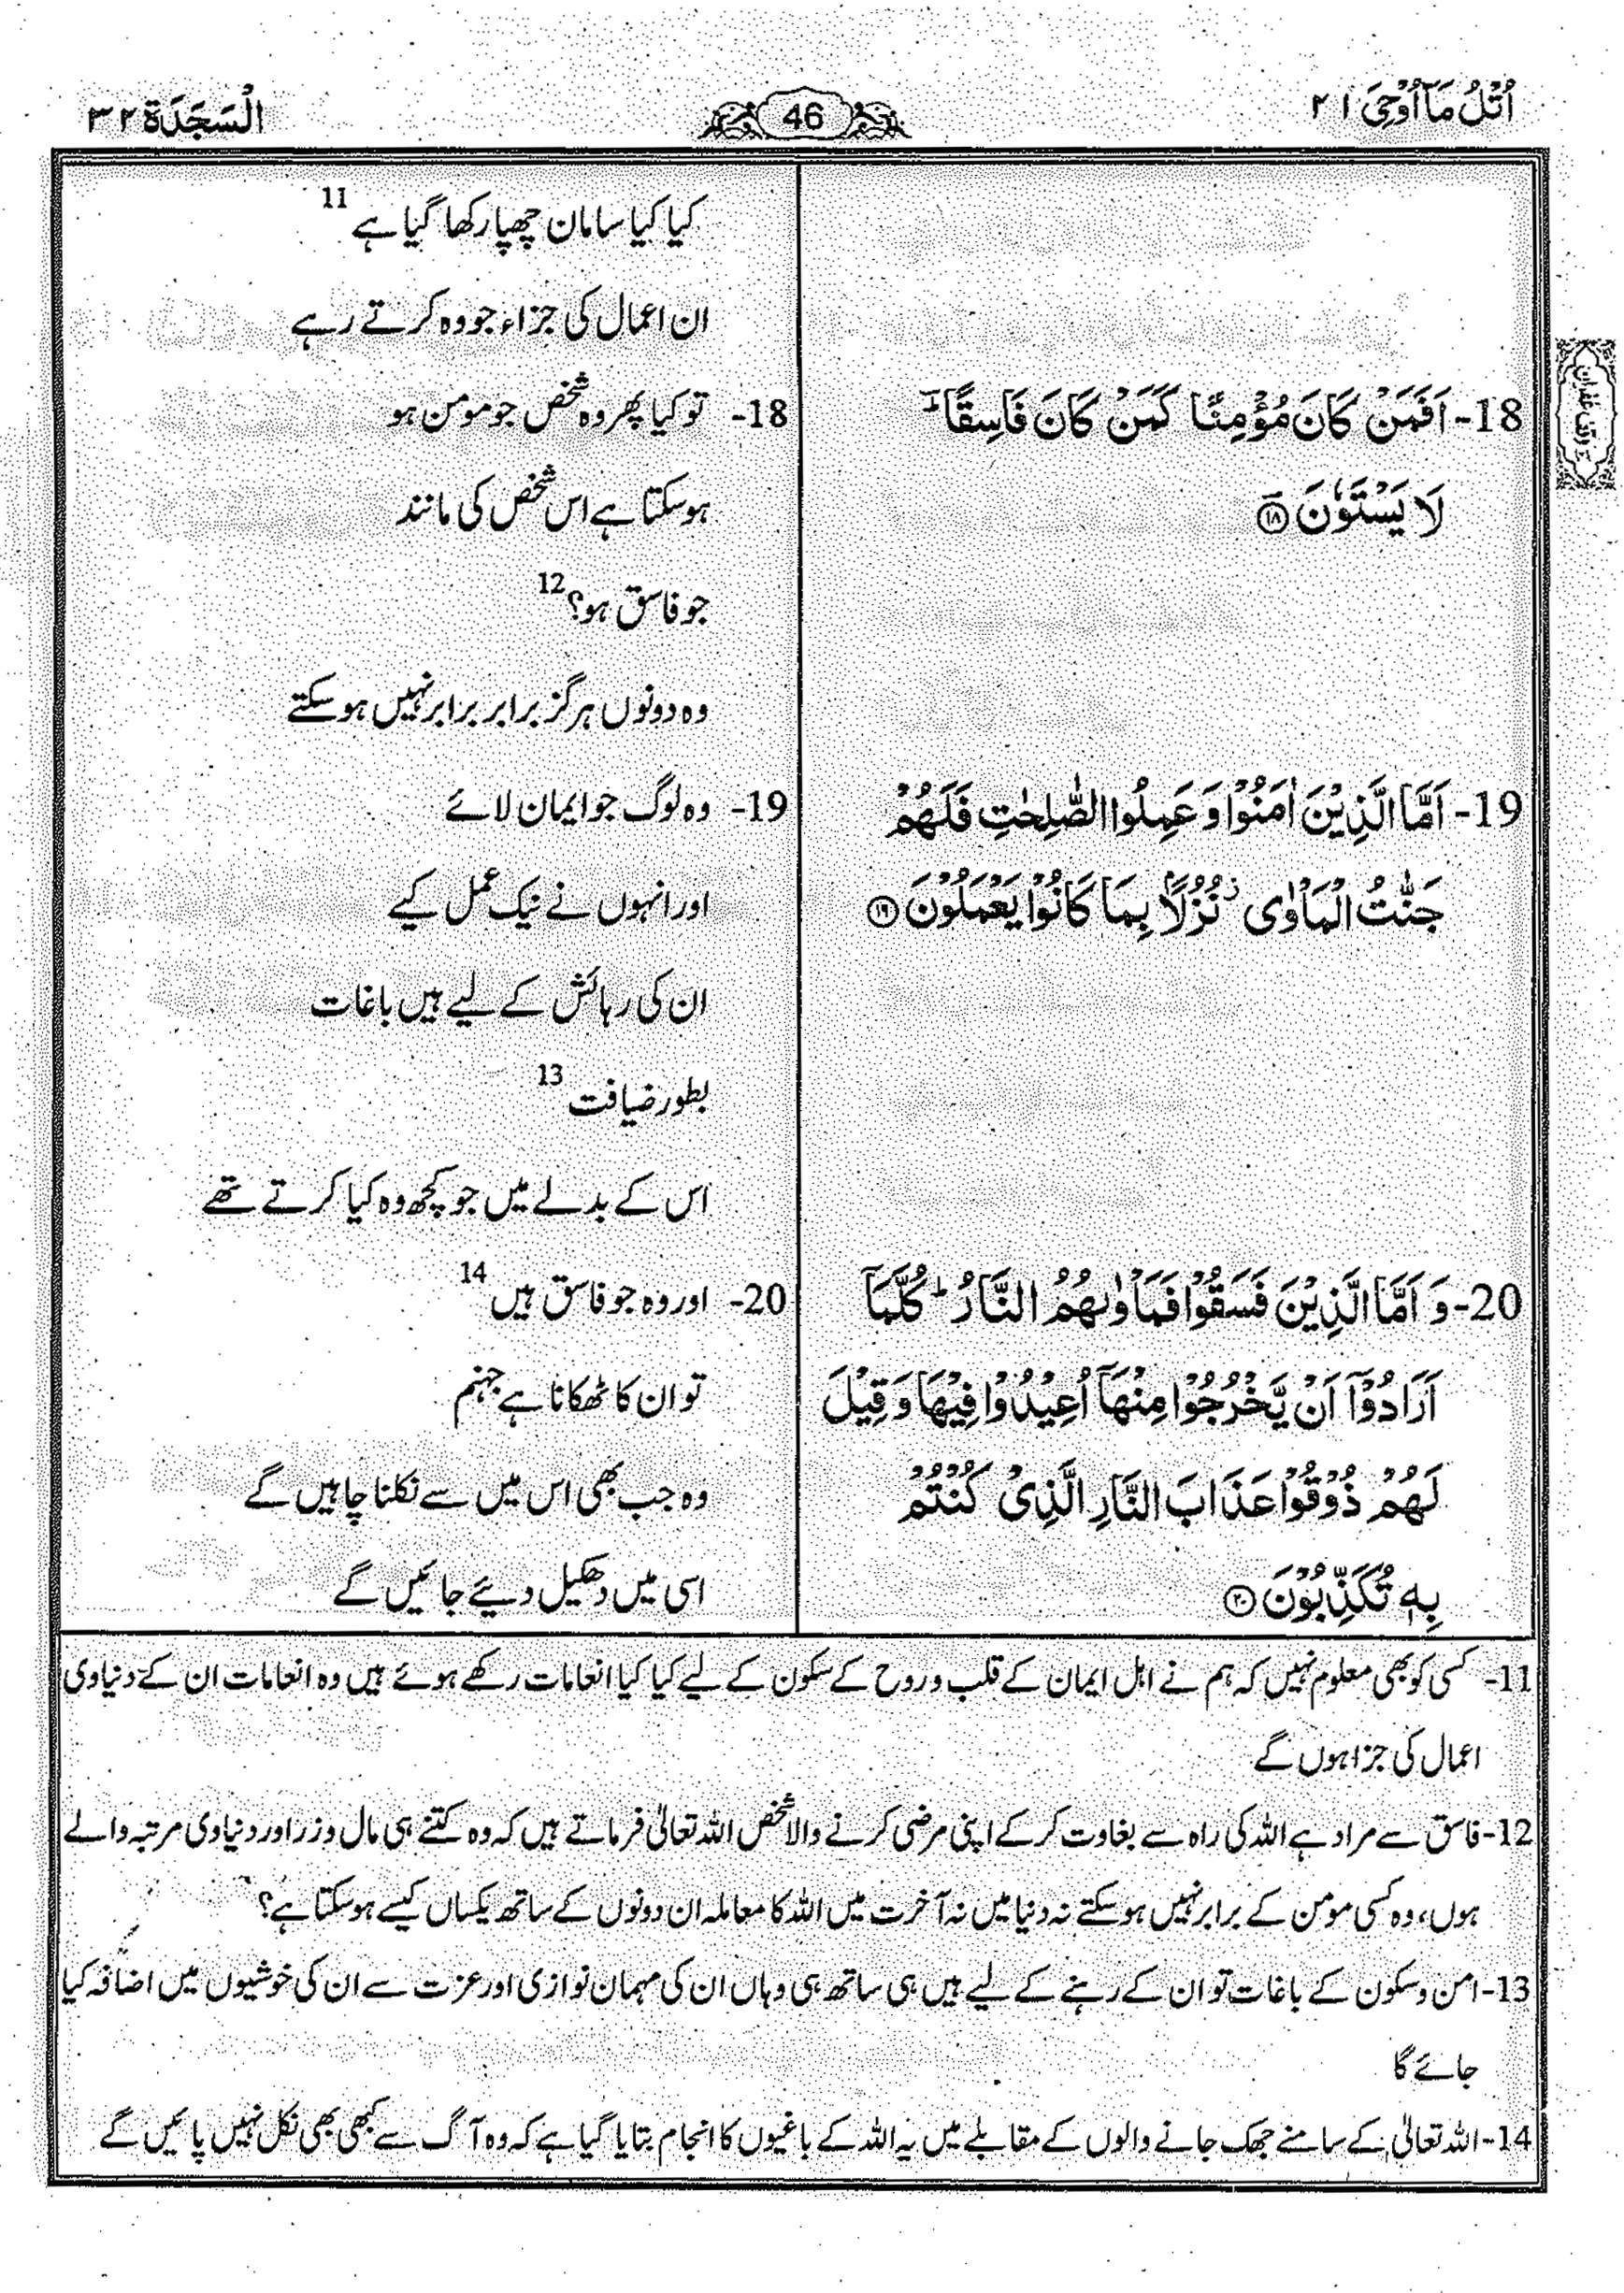 اُتْلُ مَاۤ اُوْحِیَ ۲۱
46
اَلسَّجْدَة ۳۲
وقف غفران
18- اَفَمَنْ كَانَ مُؤْمِنًا كَمَنْ كَانَ فَاسِقًا ؕ
لَا يَسْتَوٗنَ ﴿۱۸﴾
19- اَمَّا الَّذِيْنَ اٰمَنُوْا وَ عَمِلُوا الصّٰلِحٰتِ فَلَهُمْ
جَنّٰتُ الْمَاْوٰى ؗ نُزُلًۢا بِمَا كَانُوْا يَعْمَلُوْنَ ﴿۱۹﴾
20- وَ اَمَّا الَّذِيْنَ فَسَقُوْا فَمَاْوٰىهُمُ النَّارُ ؕ كُلَّمَاۤ
اَرَادُوْۤا اَنْ يَّخْرُجُوْا مِنْهَاۤ اُعِيْدُوْا فِيْهَا وَ قِيْلَ
لَهُمْ ذُوْقُوْا عَذَابَ النَّارِ الَّذِىْ كُنْتُمْ
بِهٖ تُكَذِّبُوْنَ ﴿۲۰﴾
کیا کیا سامان چھپا رکھا گیا ہے 11
ان اعمال کی جزاء جو وہ کرتے رہے
18- تو کیا پھر وہ شخص جو مومن ہو
ہو سکتا ہے اس شخص کی مانند
جو فاسق ہو؟ 12
وہ دونوں ہرگز برابر برابر نہیں ہو سکتے
19- وہ لوگ جو ایمان لائے
اور انہوں نے نیک عمل کیے
ان کی رہائش کے لیے ہیں باغات
بطور ضیافت 13
اس کے بدلے میں جو کچھ وہ کیا کرتے تھے
20- اور وہ جو فاسق ہیں 14
تو ان کا ٹھکانا ہے جہنم
وہ جب بھی اس میں سے نکلنا چاہیں گے
اسی میں دھکیل دیئے جائیں گے
11- کسی کو بھی معلوم نہیں کہ ہم نے اہل ایمان کے قلب و روح کے سکون کے لیے کیا کیا انعامات رکھے ہوئے ہیں وہ انعامات ان کے دنیاوی
اعمال کی جزا ہوں گے
12- فاسق سے مراد ہے اللہ کی راہ سے بغاوت کر کے اپنی مرضی کرنے والا شخص اللہ تعالیٰ فرماتے ہیں کہ وہ کتنے ہی مال و زر اور دنیاوی مرتبہ والے
ہوں، وہ کسی مومن کے برابر نہیں ہو سکتے نہ دنیا میں نہ آخرت میں اللہ کا معاملہ ان دونوں کے ساتھ یکساں کیسے ہو سکتا ہے؟
13- امن و سکون کے باغات تو ان کے رہنے کے لیے ہیں ہی ساتھ ہی وہاں ان کی مہمان نوازی اور عزت سے ان کی خوشیوں میں اضافہ کیا
جائے گا
14- اللہ تعالیٰ کے سامنے جھک جانے والوں کے مقابلے میں یہ اللہ کے باغیوں کا انجام بتایا گیا ہے کہ وہ آگ سے کبھی بھی نکل نہیں پائیں گے